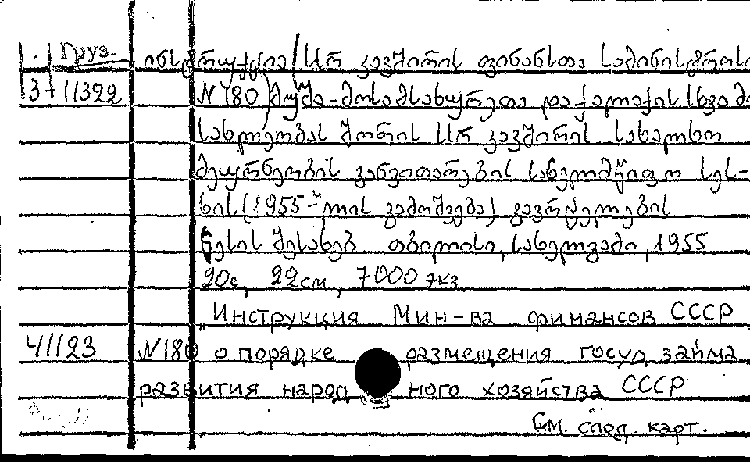 Груз. ინსტრუქცია სსრ კავშირის ფინანსთა სამინისტროსი
3-11322 N 180 მუშა-მოსამსახურეთა და ქალაქის სხვა მო
სახლეობას შორის სსრ კავშირის სახალხო
მეურნეობის განვითარების სახელმწიფო სეს-
ხის (1955 წლის გამოშვება) გავრცელების
წესის შესახებ თბილისი, სახელგამი, 1955
20с, 22см, 7000 экз
"Инструкция Мин-ва финансов СССР
41123 N180 о порядке размещения госуд займа
развития народного хозяйства СССР
См. след. карт.